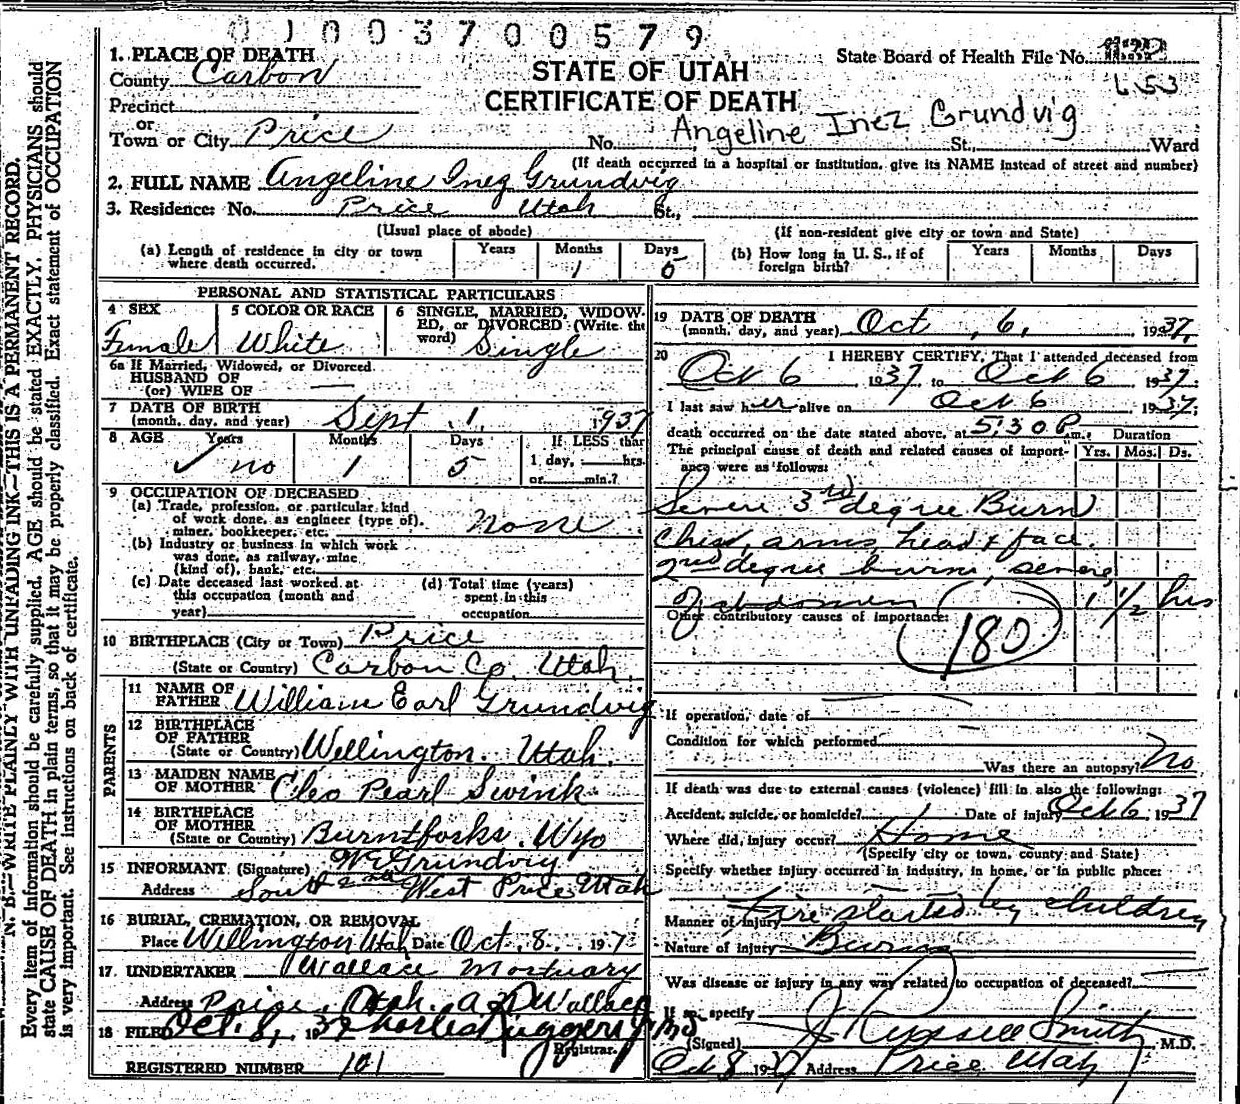 01003700579
1. PLACE OF DEATH
County Carbon
Precinct
or
Town or City Price
STATE OF UTAH
CERTIFICATE OF DEATH
State Board of Health File No.
653
No. Angeline Inez Grundvig St., Ward
(If death occurred in a hospital or institution, give its NAME instead of street and number)
2. FULL NAME Angeline Inez Grundvig
3. Residence: No. Price Utah St.,
(Usual place of abode) (If non-resident give city or town and State)
(a) Length of residence in city or town where death occurred. Years Months 1 Days 5
(b) How long in U. S., if of foreign birth? Years Months Days
PERSONAL AND STATISTICAL PARTICULARS
4 SEX Female
5 COLOR OR RACE White
6 SINGLE, MARRIED, WIDOWED, or DIVORCED (Write the word) Single
6a If Married, Widowed, or Divorced
HUSBAND OF
(or) WIFE OF —
7 DATE OF BIRTH
(month, day, and year) Sept 1 1937
8 AGE Years no Months 1 Days 5 If LESS than
1 day, hrs.
or min.?
9 OCCUPATION OF DECEASED
(a) Trade, profession, or particular kind
of work done, as engineer (type of),
miner, bookkeeper, etc. none
(b) Industry or business in which work
was done, as railway, mine
(kind of), bank, etc.
(c) Date deceased last worked at
this occupation (month and
year)
(d) Total time (years)
spent in this
occupation
10 BIRTHPLACE (City or Town) Price
(State or Country) Carbon Co. Utah.
PARENTS
11 NAME OF
FATHER William Earl Grundvig
12 BIRTHPLACE
OF FATHER
(State or Country) Wellington. Utah.
13 MAIDEN NAME
OF MOTHER Cleo Pearl Swink
14 BIRTHPLACE
OF MOTHER
(State or Country) Burntforks. Wyo
15 INFORMANT (Signature) W E Grundvig
Address South 2nd West Price Utah
16 BURIAL, CREMATION, OR REMOVAL
Place Wellington Utah Date Oct. 8. 197
17. UNDERTAKER Wallace Mortuary
Address Price, Utah.
18 FILED Oct. 8, 1937
Registrar.
REGISTERED NUMBER 101
19 DATE OF DEATH
(month, day, and year) Oct 6, 1937.
20 I HEREBY CERTIFY, That I attended deceased from
Oct 6 1937 to Oct 6 1937.
I last saw her alive on Oct 6 1937;
death occurred on the date stated above, at 5:30 P.m.: Duration
The principal cause of death and related causes of importance were as follows: Yrs. Mos. Ds.
Severe 3rd degree Burn
chest, arms, head & face.
2nd degree burn, severe,
of abdomen 1 1/2 hrs
Other contributory causes of importance:
180
If operation, date of
Condition for which performed
Was there an autopsy? No
If death was due to external causes (violence) fill in also the following:
Accident, suicide, or homicide? Date of injury Oct 6 1937
Where did injury occur? Home
(Specify city or town, county and State)
Specify whether injury occurred in industry, in home, or in public place:
Manner of injury Fire started by children
Nature of injury Burns
Was disease or injury in any way related to occupation of deceased?
If so, specify
(Signed) J. Russell Smith M.D.
Oct 8 1937 Address Price Utah
N. B.—WRITE PLAINLY WITH UNFADING INK—THIS IS A PERMANENT RECORD.
Every item of information should be carefully supplied. AGE should be stated EXACTLY. PHYSICIANS should
state CAUSE OF DEATH in plain terms, so that it may be properly classified. Exact statement of OCCUPATION
is very important. See instructions on back of certificate.